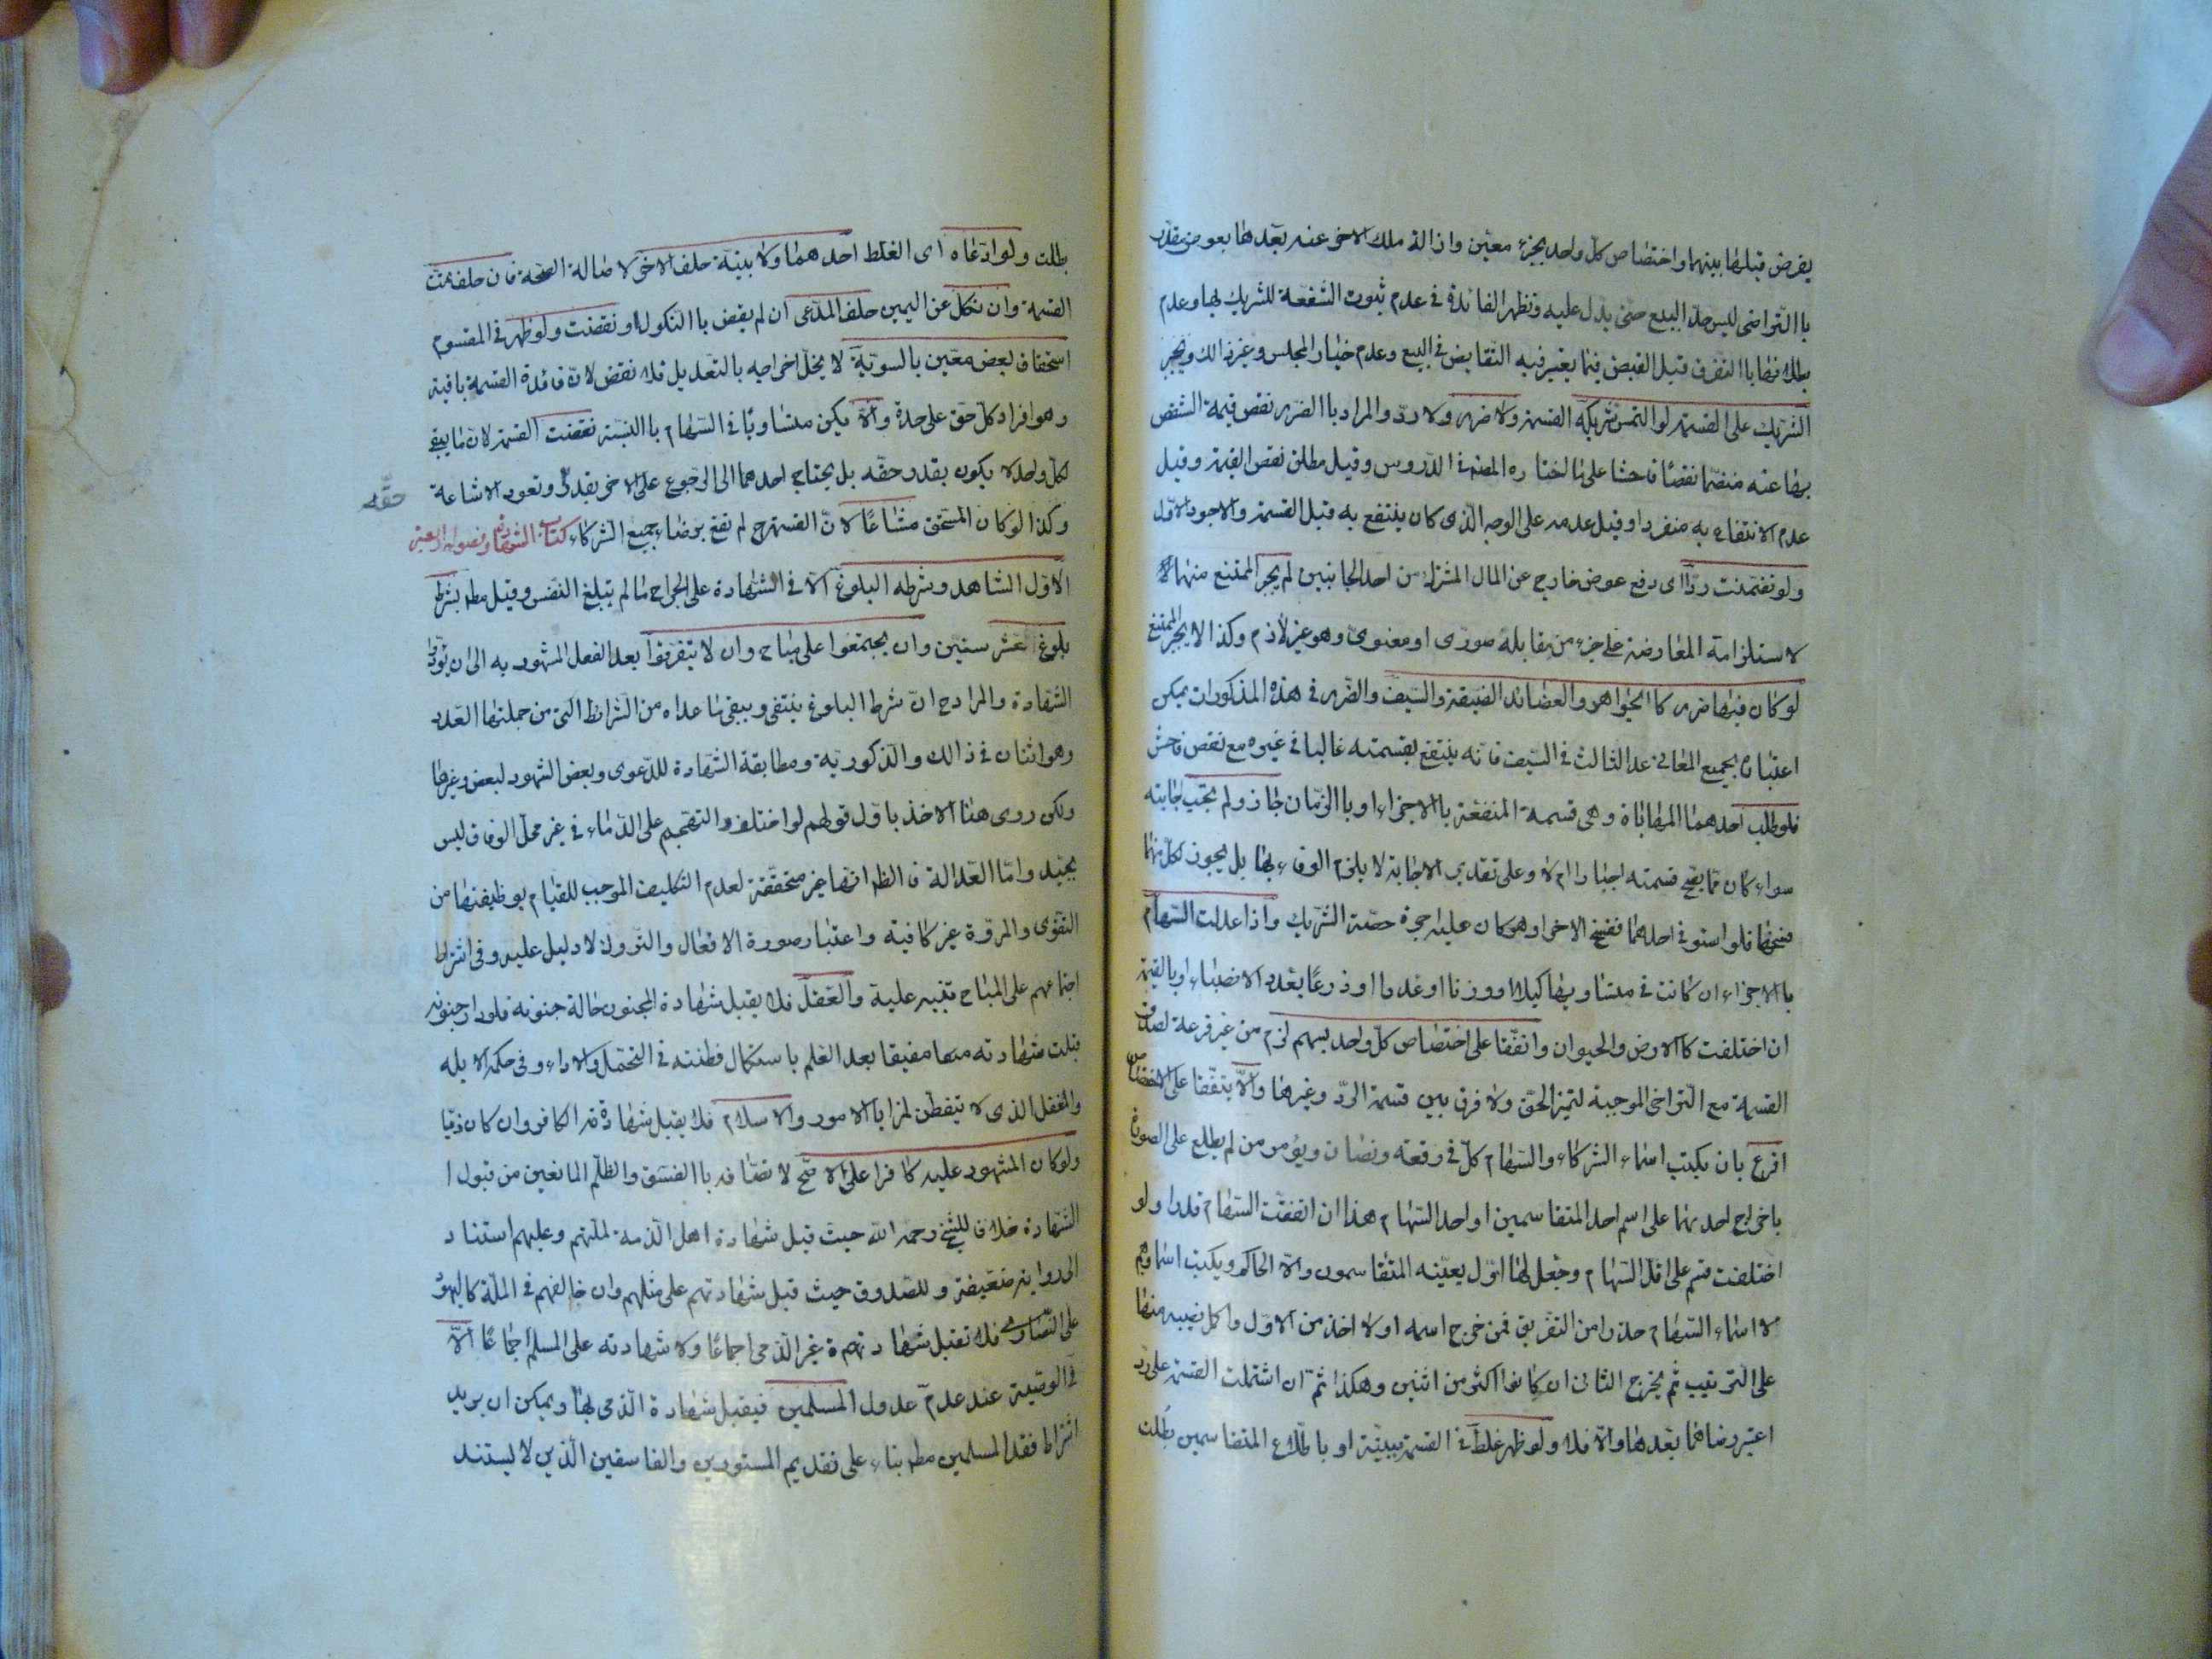 يفرض قبلها بينهما واختصاص كلّ واحد بجزء معيّن وازالة ملك الاخر عنه بعدها بعوض مقدّر
باالتراضى ليس حدّ البيع حتى يدل عليه وتظهر الفائدة فى عدم ثبوت الشفعة للشريك بها وعدم
بطلانها باالتفرق قبل القبض فيما يعتبر فيه التقابض فى البيع وعدم خيار المجلس وغير ذالك ويجبر
الشريك على القسمة لو التمس شريكه القسمة ولا ضرر ولا ردّ والمراد باالضرر نقص قيمة الشقص
بها عنه منضما نقصًا فاحشا على ما اختاره المصنف فى الدّروس وقيل مطلق نقص القيمة وقيل
عدم الانتفاع به منفردا وقيل عدمه على الوجه الّذى كان ينتفع به قبل القسمة والاجود الاوّل
ولو تضمنت ردّا اى دفع عوض خارج عن المال المشترك من احد الجانبين لم يجبر الممتنع منهما
لاستلزامه المعاوضة على جزء من مقابله صورى او معنوىّ وهو غير لازم وكذا لا يجبر الممتنع
لو كان فيها ضرر كاالجواهر والعضائد الضيقة والسّيف والضّرر فى هذه المذكورات يمكن
اعتباره بجميع المعانى عدا الثالث فى السّيف فانه ينتفع بقسمته غالبا فى غيره مع نقص فاحش
فلو طلب احدهما المهاياة وهى قسمة المنفعة باالاجزاء او باالزمان جاز ولم يجب اجابته
سواء كان ممّا يصحّ قسمته اجبارا ام لا وعلى تقدير الاجابة لا يلزم الوفاء بها بل يجوز لكلّ منهما
فسخها فلو استوفى احدهما ففسخ الاخر او هو كان عليه اجرة حصّة الشّريك واذا عدلت السّهام
باالاجزاء ان كانت فى متساويها كيلا او وزنا او عددا او ذرعًا بعدد الانصباء او باالقيمة
ان اختلفت كاالارض والحيوان واتفّقا على اختصاص كلّ واحد بسهم لزم من غير قرعة لصدق
القسمة مع التّراضى الموجبة لتميز الحقّ ولا فرق بين قسمة الردّ وغيرها والاّ يتفّقا على الاختصاص
اقرع بان يكتب اسماء الشركاء والسّهام كلّ فى رقعة وتصان ويؤمر من لم يطلع على الصورة
باخراج احديهما على اسم احد المتقاسمين او احد السّهام هذا ان اتفقت السّهام قدرا ولو
اختلفت قسم على اقلّ السّهام وجعل لها اوّل يعيّنه المتقاسمون والاّ الحاكم ويكتب اسماؤهم
لا اسماء السّهام حذرا من التفريق فمن خرج اسمه اولا اخذ من الاوّل واكمل نصيبه منها
على الترتيب ثم يخرج الثانى ان كانوا اكثر من اثنين وهكذا ثمّ ان اشتملت القسمة على ردّ
اعتبر رضاهما بعدها والاّ فلا ولو ظهر غلط فى القسمة ببيّنة او باطّلاع المتقاسمين بطلت
بطلت ولو ادّعاه اى الغلط احدهما ولا بيّنة حلف الاخر لاصالة الصحّة فان حلف تمت
القسمة وان نكل عن اليمين حلف المدّعى ان لم يقض باالنكول ونقضت ولو ظهر فى المقسوم
استحقاق بعض معيّن بالسويّة لا يخلّ اخراجه بالتعديل فلا نقض لانّ فائدة القسمة باقية
وهو افراد كلّ حقّ على حدة والاّ يكن متساويًا فى السّهام باالنسبة نقضت القسمة لانّ ما يبقى
لكلّ واحد لا يكون بقدر حقّه بل يحتاج احدهما الى الرّجوع على الاخر بقدر وتعود الاشاعة حقّه
وكذا لو كان المستحق مشاعًا لانّ القسمة ح لم تقع برضاء جميع الشركاء كتاب الشهادات وفصوله اربعة
الاوّل الشاهد وشرطه البلوغ الاّ فى الشهادة على الجراح ما لم يبلغ النفس وقيل مطم بشرط
بلوغ عشر سنين وان يجتمعوا على مباح وان لا يتفرقوا بعد الفعل المشهود به الى ان يؤدّوا
الشهادة والمراد ح انّ شرط البلوغ ينتفى ويبقى ما عداه من الشرائط التى من جملتها العدد
وهو اثنان فى ذالك والذكوريّة ومطابقة الشهادة للدّعوى وبعض الشهود لبعض وغيرها
ولكن روى هنا الاخذ باوّل قولهم لو اختلف والتهجم على الدّماء فى غير محلّ الوفاق ليس
بجيّد وامّا العدالة فالظم انها غير متحقّقة لعدم التكليف الموجب للقيام بوظيفتها من
التقوى والمرّوة غير كافية واعتبار صورة الافعال والتروك لا دليل عليه وفى اشتراط
اجتماعهم على المباح تنبيه علية والعقل فلا يقبل شهادة المجنون حالة جنونه فلو دار جنونه
قبلت شهادته مفيقا بعد العلم باستكمال فطنته فى التحمّل والاداء وفى حكمه الابله
والمغفل الذى لا يتفطن لمزايا الامور والاسلام فلا يقبل شهادة الكافر وان كان ذمّيا
ولو كان المشهود عليه كافرا على الاصحّ لاتصافه باالفسق والظّلم المانعين من قبول ا
الشهادة خلافا للشيخ رحمه الله حيث قبل شهادة اهل الذمة لملّتهم وعليهم استناد
الى رواية ضعيفة وللصّدوق حيث قبل شهادتهم على مثلهم وان خالفهم فى الملّة كاليهود
على النصارى فلا تقبل شهادتهم غير الذّمى اجماعًا ولا شهادته على المسلم اجماعًا الاّ
فى الوصيّة عند عدم عدول المسلمين فيقبل شهادة الذّمى بها ويمكن ان يريد
اشتراط فقد المسلمين مطم بناء على تقديم المستورين والفاسقين الّذين لا يستند